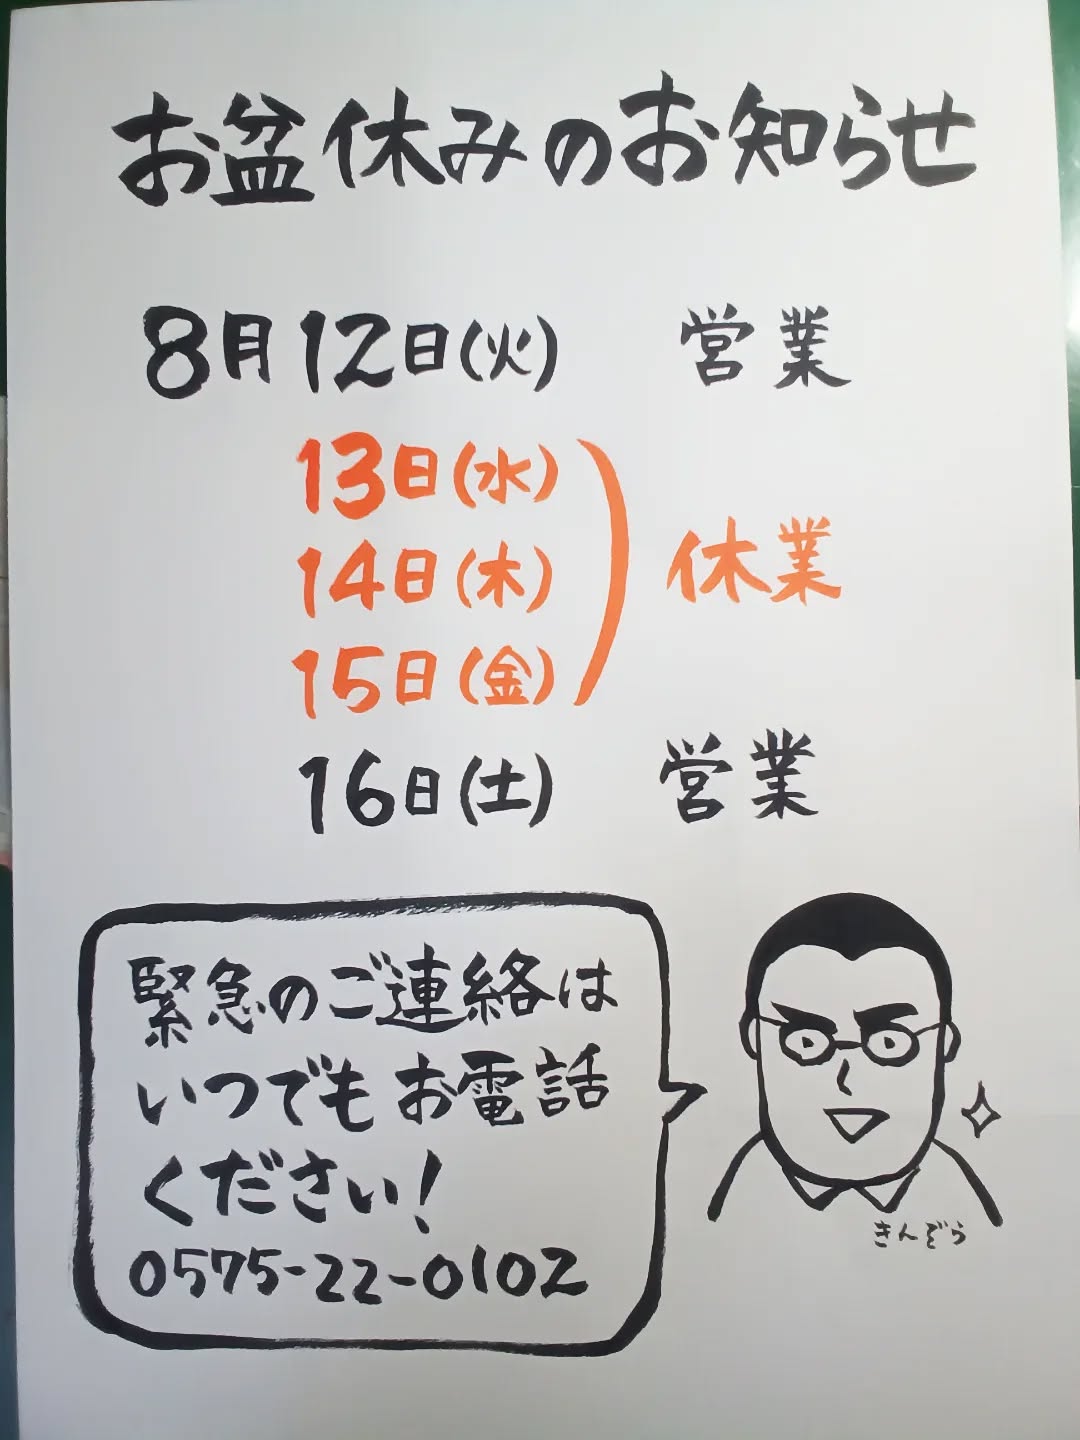 お盆休みのお知らせ
8月12日(火) 営業
13日(水)
14日(木) 休業
15日(金)
16日(土) 営業
緊急のご連絡は
いつでもお電話
ください!
0575-22-0102
きんぞう